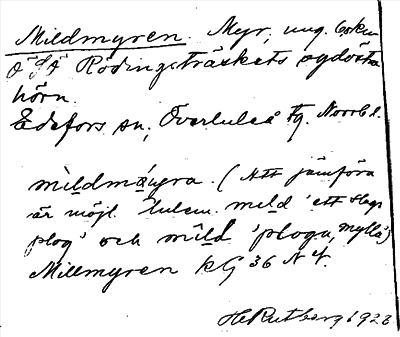 Mildmyren. Myr, ung. 6 o km
O S Ä Rödingsträskets sydöstra
hörn.
Edefors sn, Överluleå tg. Norrb l.
mildmáyra. (Att jämföra
är möjl. lulem. meld 'ett slags
plog' och mild 'ploga, mylla')
Millmyren kG 36 NV.
H Rutberg 1923